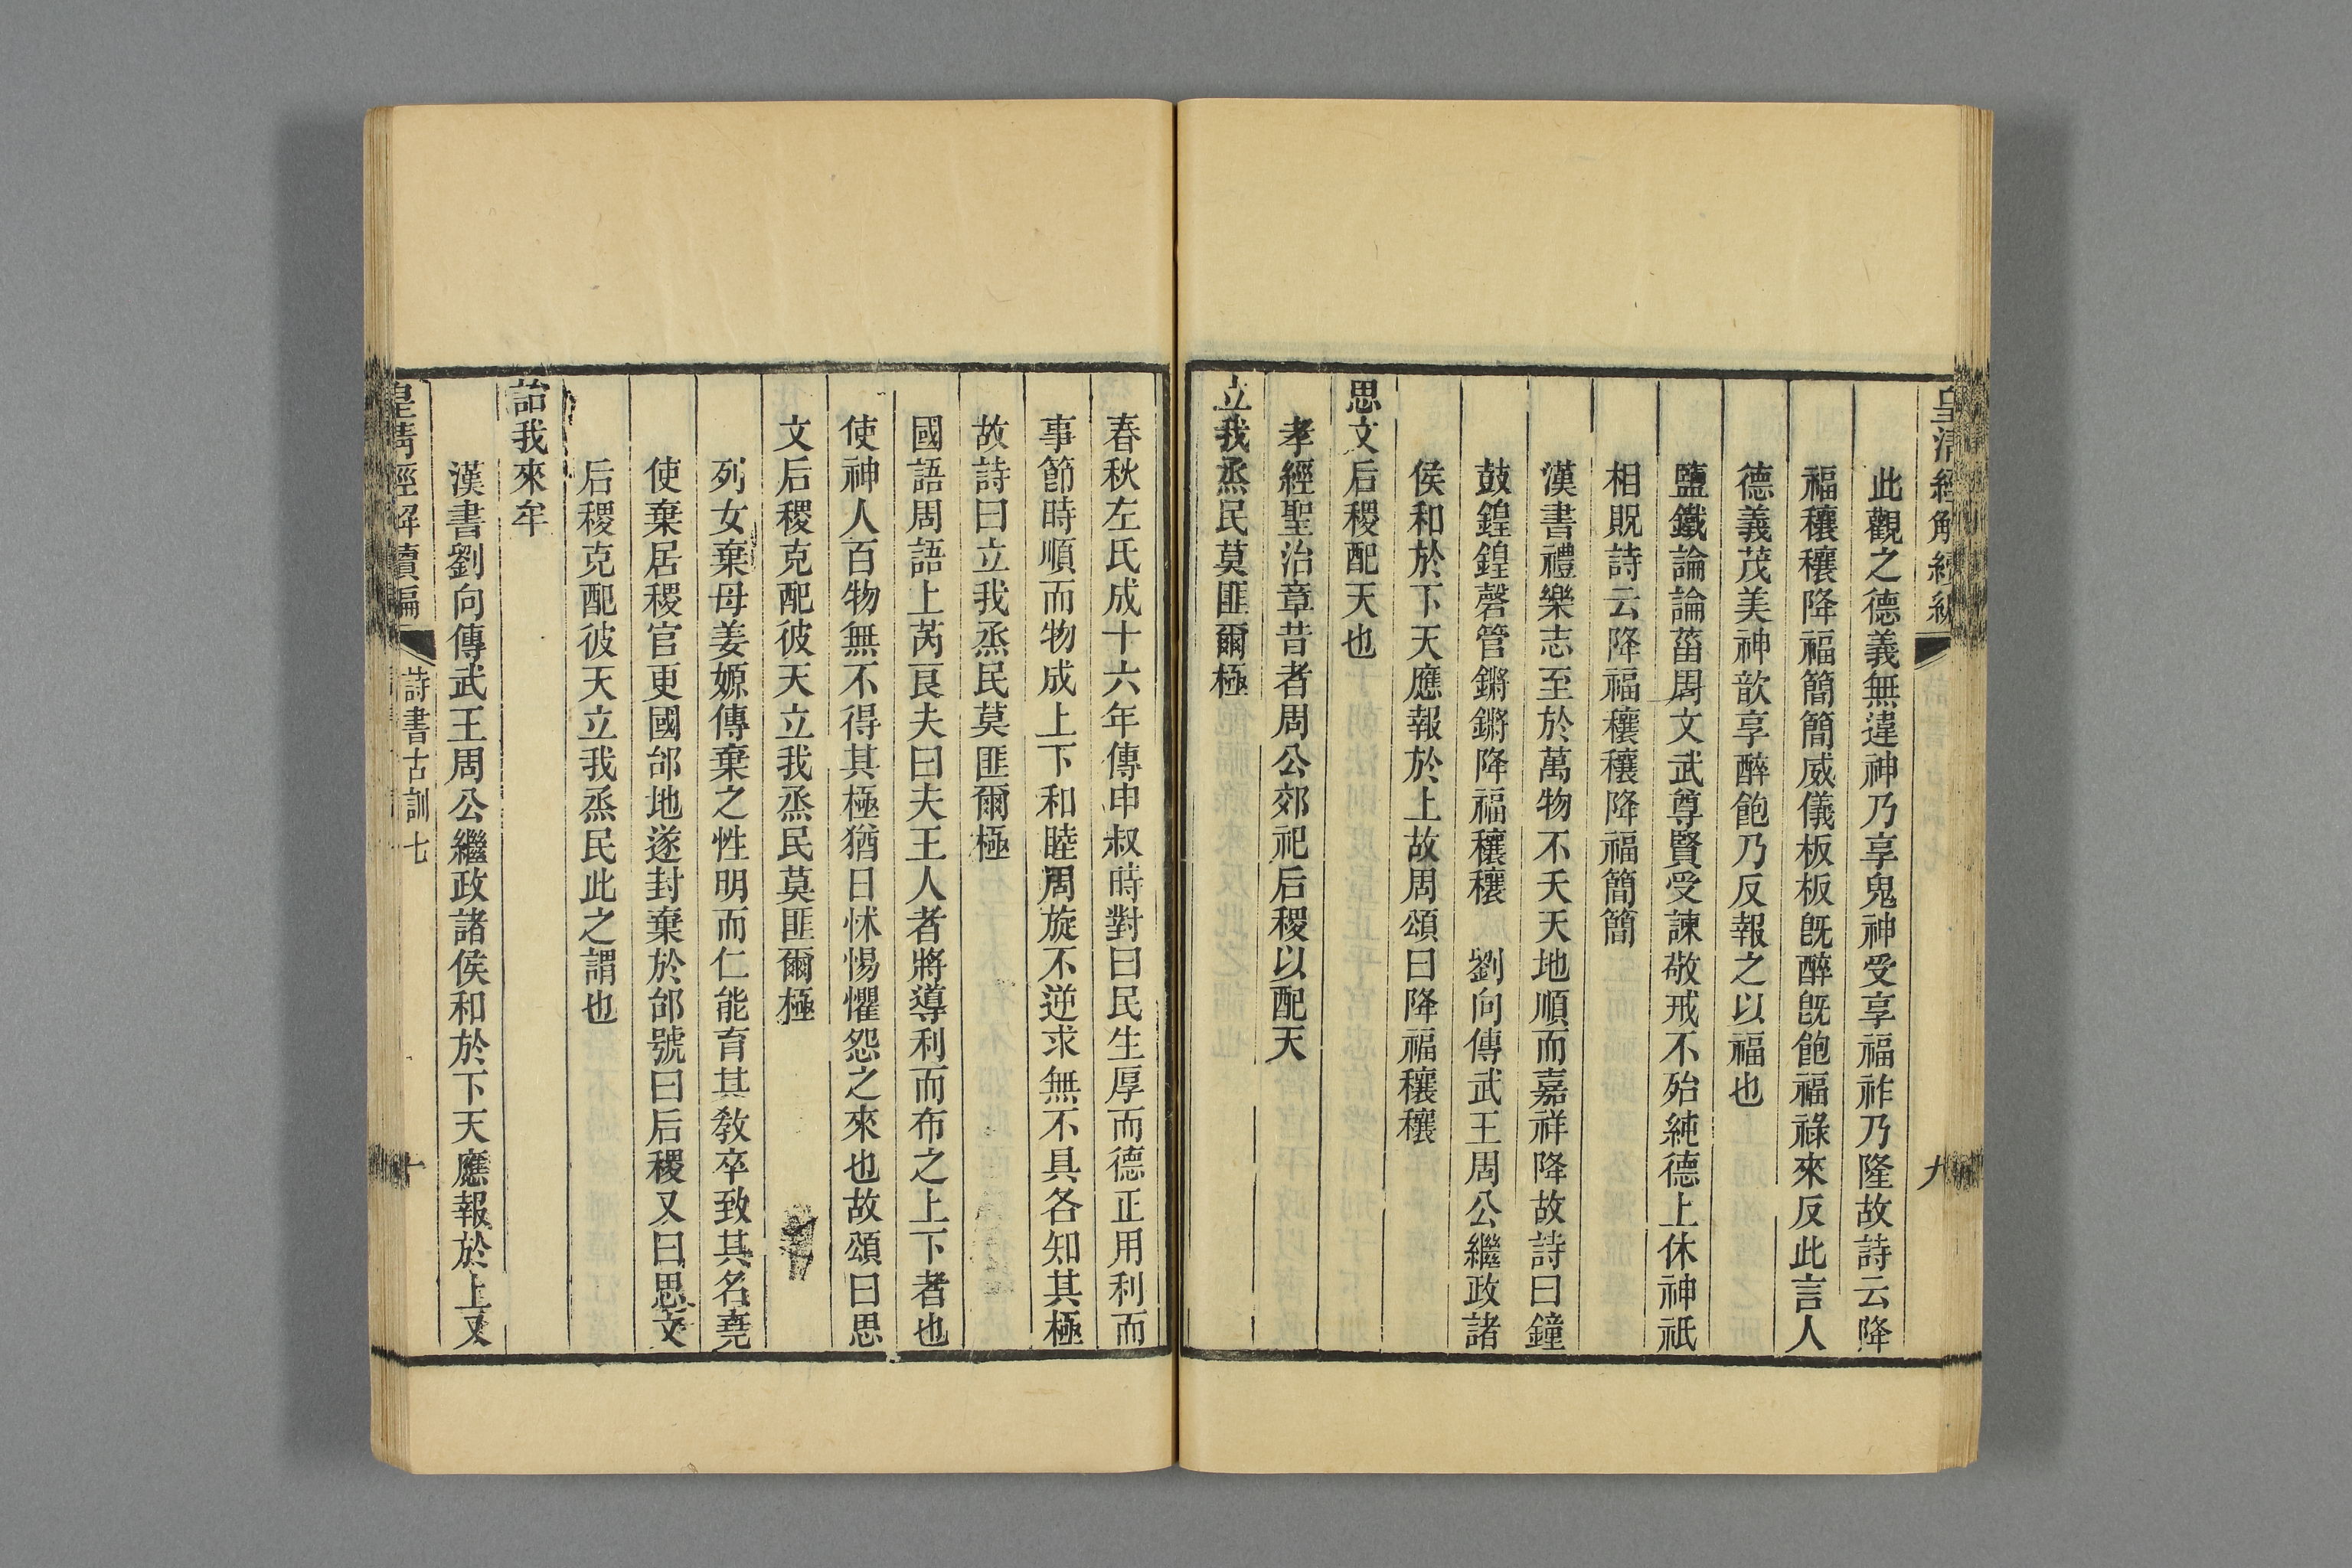 皇清經解續編
九
此觀之德義無違神乃享鬼神受享福祚乃隆故詩云降
福穰穰降福簡簡威儀板板旣醉旣飽福祿來反此言人
德義茂美神歆享醉飽乃反報之以福也
鹽鐵論論菑周文武尊賢受諫敬戒不殆純德上休神祇
相貺詩云降福穰穰降福簡簡
漢書禮樂志至於萬物不夭天地順而嘉祥降故詩曰鐘
鼓鍠鍠磬管鏘鏘降福穰穰 劉向傳武王周公繼政諸
侯和於下天應報於上故周頌曰降福穰穰
思文后稷配天也
孝經聖治章昔者周公郊祀后稷以配天
立我烝民莫匪爾極
春秋左氏成十六年傳申叔時對曰民生厚而德正用利而
事節時順而物成上下和睦周旋不逆求無不具各知其極
故詩曰立我烝民莫匪爾極
國語周語上芮良夫曰夫王人者將導利而布之上下者也
使神人百物無不得其極猶日怵惕懼怨之來也故頌曰思
文后稷克配彼天立我烝民莫匪爾極
列女棄母姜嫄傳棄之性明而仁能育其教卒致其名堯
使棄居稷官更國邰地遂封棄於邰號曰后稷又曰思文
后稷克配彼天立我烝民此之謂也
詒我來牟
漢書劉向傳武王周公繼政諸侯和於下天應報於上又
皇淸經解續編
詩書古訓七
十